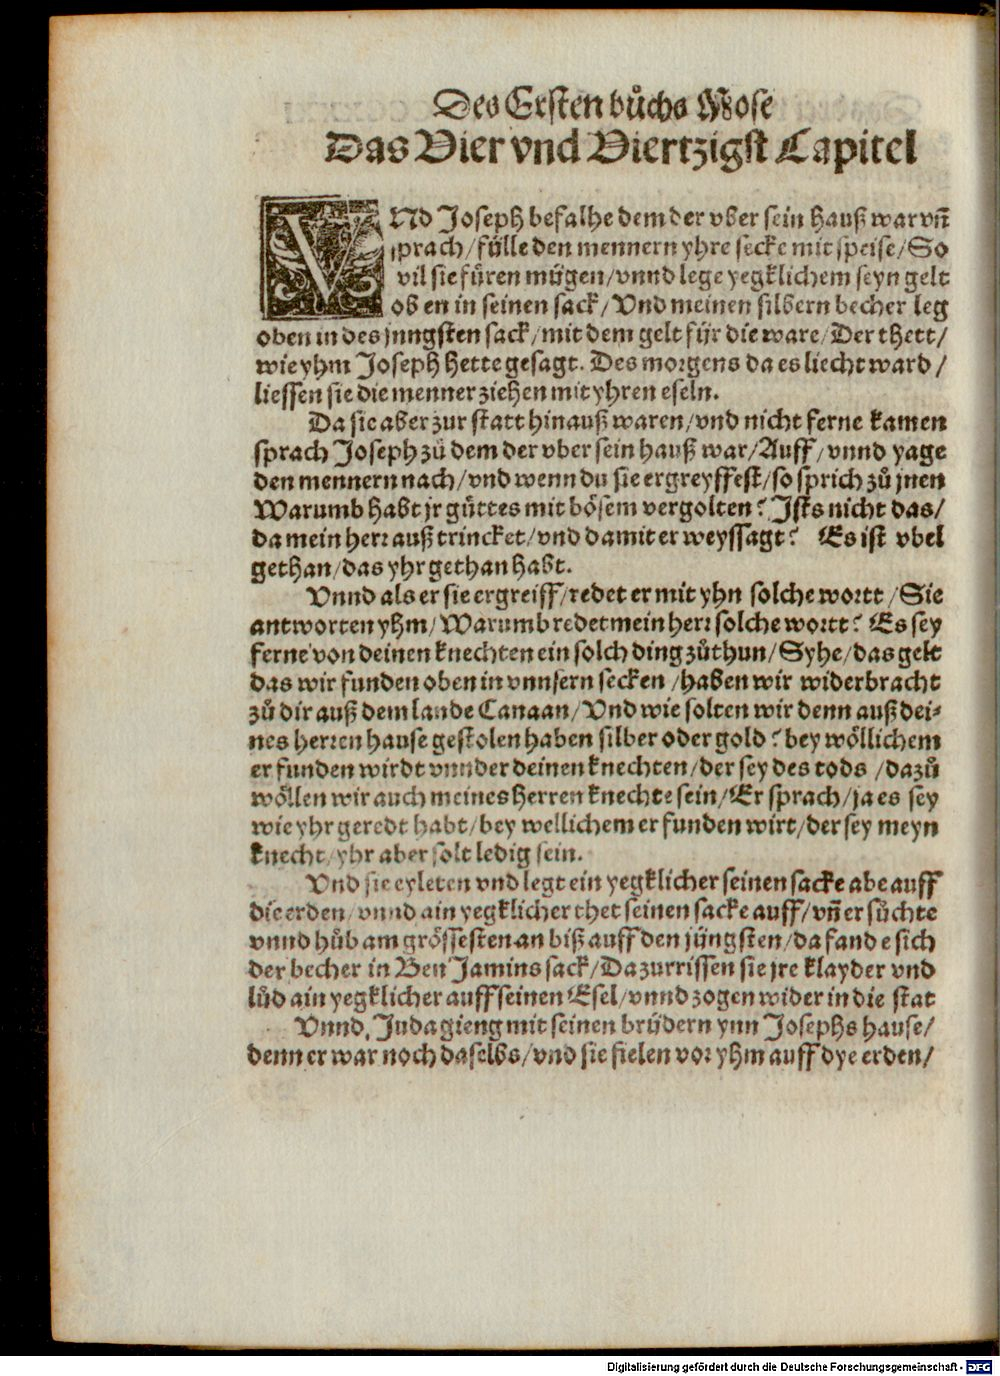 Des Ersten bůchs Mose
Das Vier vnd Viertzigst Capitel
VNd Joseph befalhe dem der vber sein hauß war vn̄
sprach/fülle den mennern yhre secke mit speise/So
vil sie füren mügen/vnnd lege yegklichem seyn gelt
oben in seinen sack/Vnd meinen silbern becher leg
oben in des jungsten sack/mit dem gelt für die ware/Der thett/
wie yhm Joseph hette gesagt. Des morgens da es liecht ward/
liessen sie die menner ziehen mit yhren eseln.
Da sie aber zur statt hinauß waren/vnd nicht ferne kamen
sprach Joseph zů dem der vber sein hauß war/Auff/vnnd yage
den mennern nach/vnd wenn du sie ergreyffest/so sprich zů jnen
Warumb habt jr gůttes mit bösem vergolten? Jsts nicht das/
da mein herr auß trincket/vnd damit er weyssagt? Es ist vbel
gethan/das yhr gethan habt.
Vnnd als er sie ergreiff/redet er mit yhn solche wortt/Sie
antworten yhm/Warumb redet mein herr solche wortt? Es sey
ferne von deinen knechten ein solch ding zůthun/Syhe/das gelt
das wir funden oben in vnnsern secken/haben wir widerbracht
zů dir auß dem lande Canaan/Vnd wie solten wir denn auß dei⸗
nes herren hause gestolen haben silber oder gold? bey wöllichem
er funden wirdt vnnder deinen knechten/der sey des tods/dazů
wöllen wir auch meines herren knechte sein/Er sprach/ja es sey
wie yhr geredt habt/bey wellichem er funden wirt/der sey meyn
knecht/yhr aber solt ledig sein.
Vnd sie eyleten vnd legt ein yegklicher seinen sacke abe auff
die erden/vnnd ain yegklicher thet seinen sacke auff/vn̄ er sůchte
vnnd hůb am grössesten an biß auff den jüngsten/da fande sich
der becher in Ben Jamins sack/Da zurrissen sie jre klayder vnd
lůd ain yegklicher auff seinen Esel/vnnd zogen wider in die stat
Vnnd Juda gieng mit seinen brüdern ynn Josephs hause/
denn er war noch daselbs/vnd sie fielen vor yhm auff dye erden/
Digitalisierung gefördert durch die Deutsche Forschungsgemeinschaft - DFG